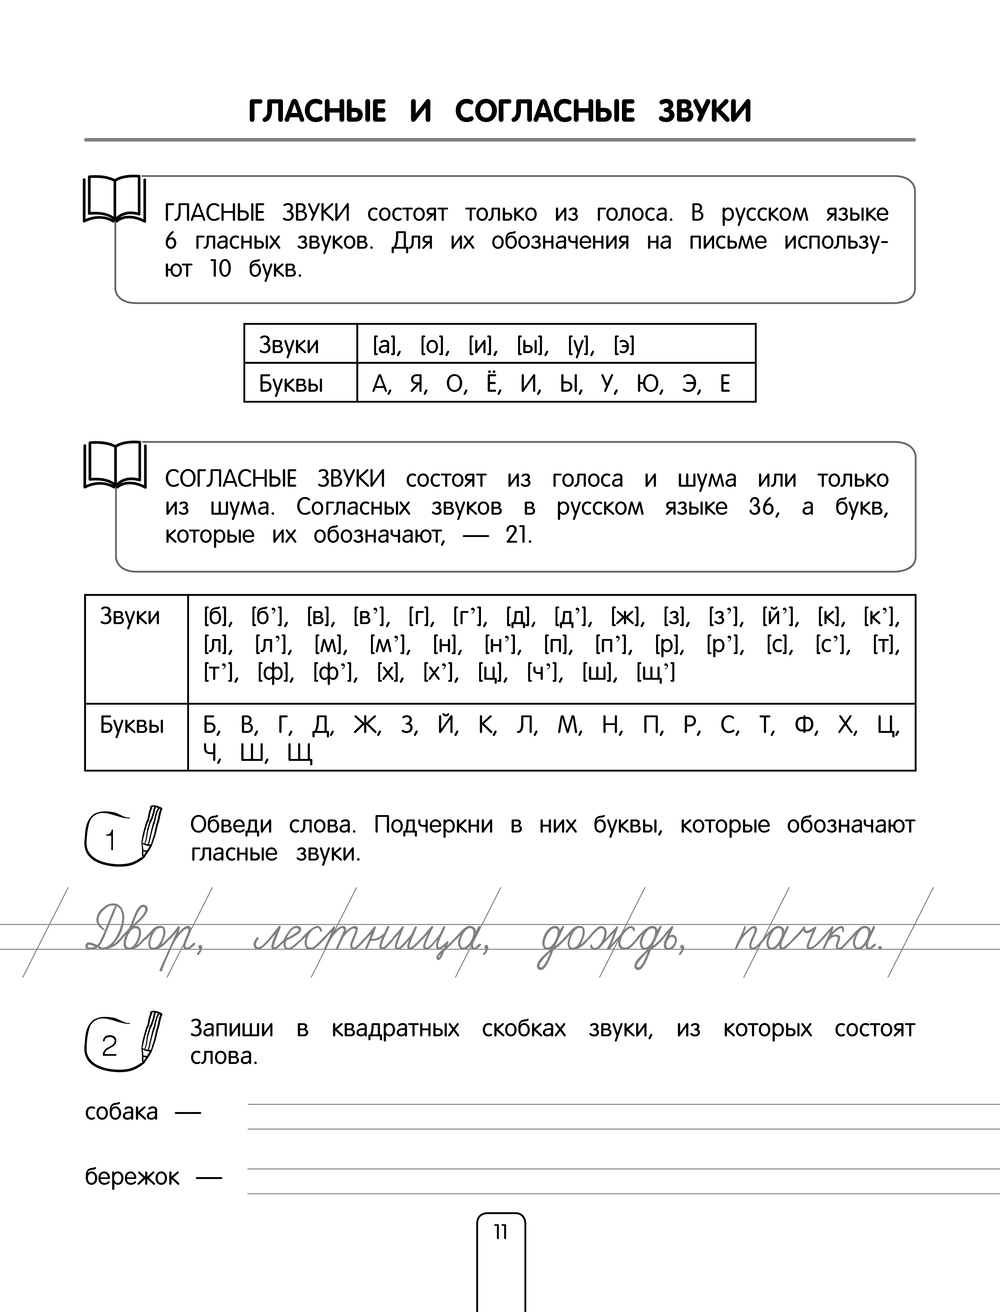 ГЛАСНЫЕ И СОГЛАСНЫЕ ЗВУКИ
ГЛАСНЫЕ ЗВУКИ состоят только из голоса. В русском языке
6 гласных звуков. Для их обозначения на письме использу-
ют 10 букв.
Звуки [а], [о], [и], [ы], [у], [э]
Буквы А, Я, О, Ё, И, Ы, У, Ю, Э, Е
СОГЛАСНЫЕ ЗВУКИ состоят из голоса и шума или только
из шума. Согласных звуков в русском языке 36, а букв,
которые их обозначают, — 21.
Звуки [б], [б’], [в], [в’], [г], [г’], [д], [д’], [ж], [з], [з’], [й’], [к], [к’],
[л], [л’], [м], [м’], [н], [н’], [п], [п’], [р], [р’], [с], [с’], [т],
[т’], [ф], [ф’], [х], [х’], [ц], [ч’], [ш], [щ’]
Буквы Б, В, Г, Д, Ж, З, Й, К, Л, М, Н, П, Р, С, Т, Ф, Х, Ц,
Ч, Ш, Щ
1 Обведи слова. Подчеркни в них буквы, которые обозначают
гласные звуки.
Двор, лестница, дождь, пачка.
2 Запиши в квадратных скобках звуки, из которых состоят
слова.
собака —
бережок —
11